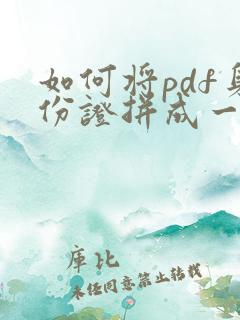 如何将pdf身
份證拼成一
庫比
未經同意禁止轉載